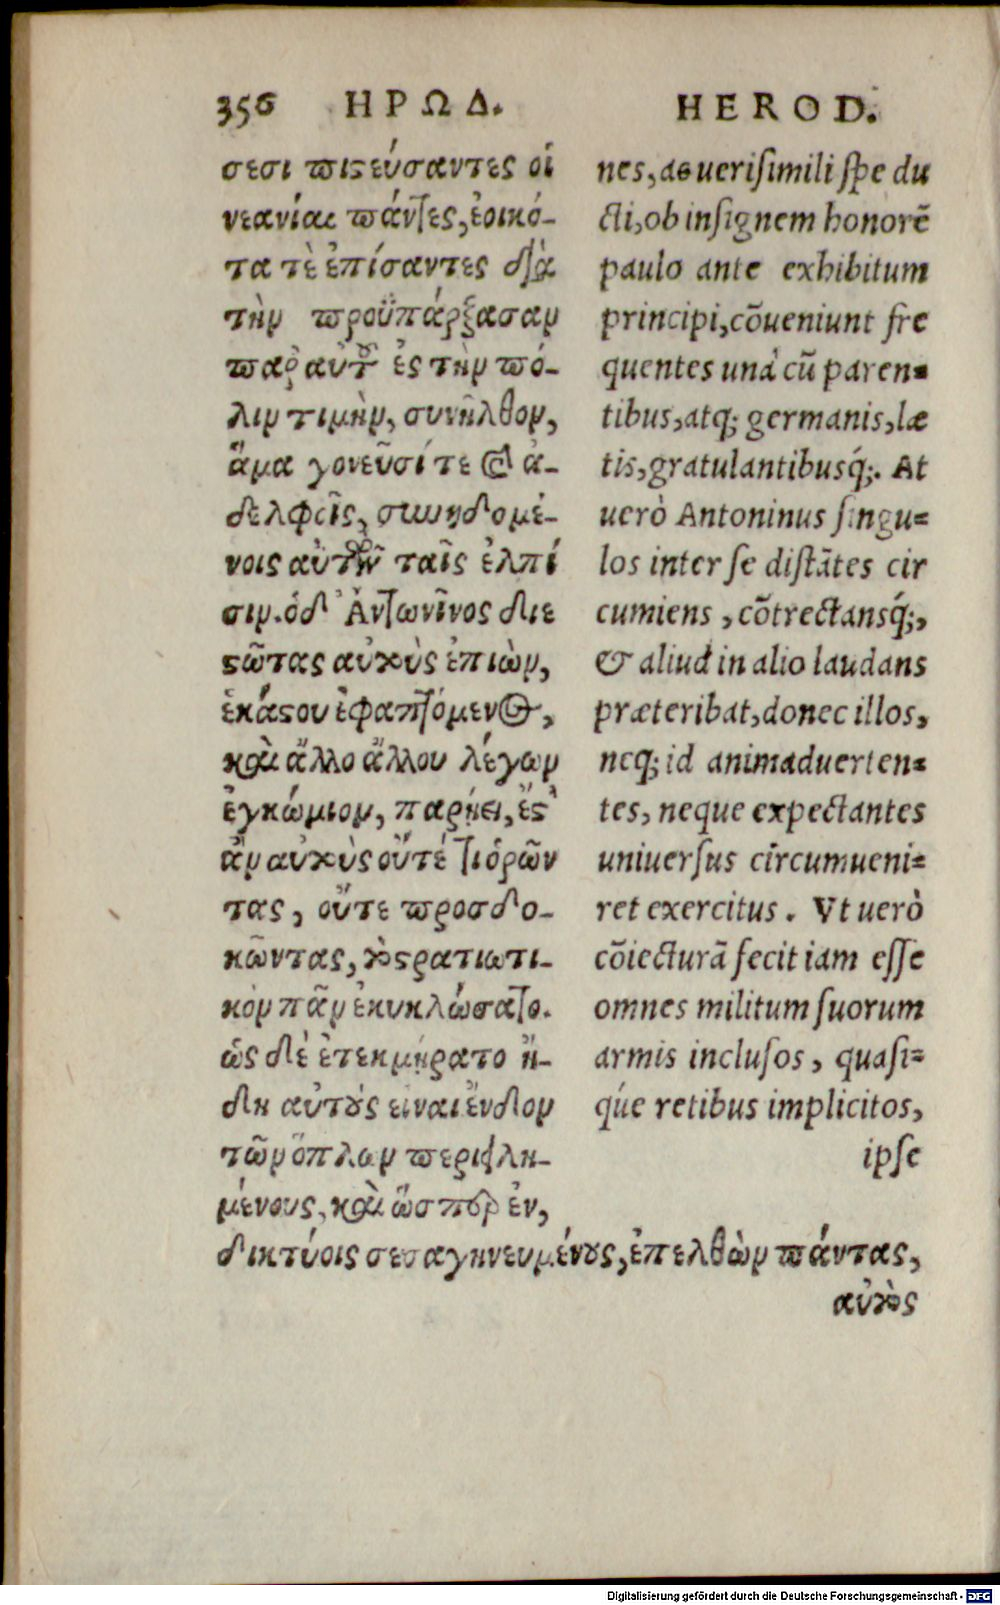 356 ΗΡΩΔ.
σεσι πιστεύσαντες οἱ
νεανίαι πάντες, ἐοικό-
τα τὲ ἐπίσαντες διὰ
τὴν προϋπάρξασαν
παρ᾽ αὐτοῦ ἐς τὴν πό-
λιν τιμὴν, συνῆλθον,
ἅμα γονεῦσί τε καὶ ἀ-
δελφοῖς, συνηδομέ-
νοις αὐτῶν ταῖς ἐλπί
σιν. ὁ δ᾽ Ἀντωνῖνος διε
στῶτας αὐτοὺς ἐπιὼν,
ἑκάστου ἐφαπτόμενος,
καὶ ἄλλο ἄλλου λέγων
ἐγκώμιον, παρῄει, ἔστ᾽
ἂν αὐτοὺς οὔτέ τι ὁρῶν
τας, οὔτε προσδο-
κῶντας, τὸ στρατιωτι-
κὸν πᾶν ἐκυκλώσατο.
ὡς δὲ ἐτεκμήρατο ἤ-
δη αὐτοὺς εἶναι ἔνδον
τῶν ὅπλων περιειλη-
μένους, καὶ ὥσπερ ἐν,
δικτύοις σεσαγηνευμένους, ἐπελθὼν πάντας,
αὐτὸς
HEROD.
nes, ac uerisimili spe du
cti, ob insignem honorẽ
paulo ante exhibitum
principi, cõueniunt fre
quentes unà cũ paren-
tibus, atq; germanis, læ
tis, gratulantibusq́;. At
uerò Antoninus singu-
los inter se distãtes cir
cumiens, cõtrectansq́;,
& aliud in alio laudans
præteribat, donec illos,
neq; id animaduerten-
tes, neque expectantes
uniuersus circumueni-
ret exercitus. Vt uerò
cõiecturã fecit iam esse
omnes militum suorum
armis inclusos, quasi-
q́ue retibus implicitos,
ipse
Digitalisierung gefördert durch die Deutsche Forschungsgemeinschaft - DFG